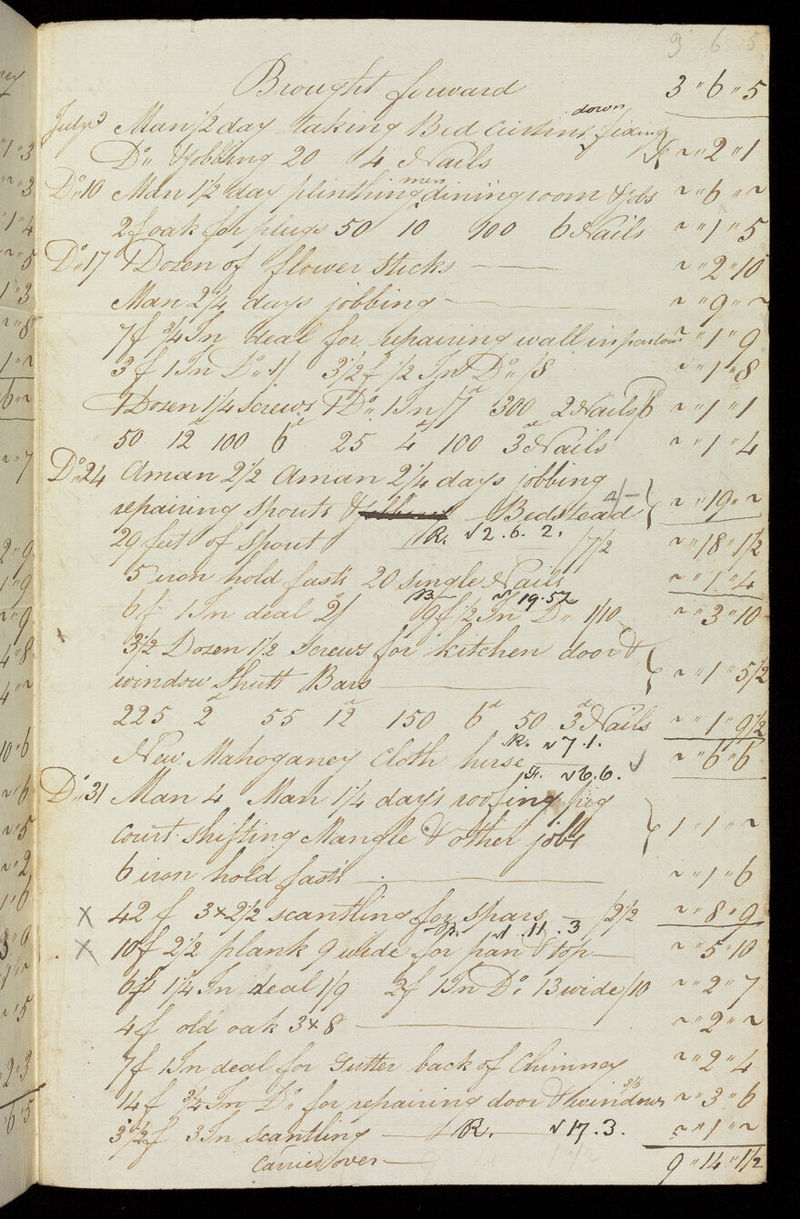 3 6 5
Brought forward 3 " 6 " 5
July 3 Man 1/2 day taking Bed Curtins down fixing
Do. & Jobbing 20 4 Nails ~ " 2 " 1
Do. 10 Man 1 1/2 day plinthing diningroom & jobs ~ " 6 " ~
2 f oak for plugs 50 10 100 6 Nails ~ " 1 " 5
Do. 17 1 Dozen of flower sticks ~ " 2 " 10
Man 2 1/4 days jobbing ~ " 9 " ~
7f 3/4 In deal for repairing wall in parlour ~ " 1 " 9
3 f 1 In Do. 3 1/2 f 1/2 In Do. /8 ~ " 1 " 8
1 Dozen 1 1/4 Screws 1 Do. 1 In /7 300 2 Nails 6 ~ " 1 " 1
50 12 100 6 25 4 100 3 Nails ~ " 1 " 4
Do. 24 A man 2 1/2 A man 2 1/4 days jobbing
repairing spouts & Bedstead 4/- ~ " 19 " ~
29 feet of Spout R. √ 2 . 6 . 2 . /7 1/2 ~ " 18 " 1 1/2
5 iron hold fasts 20 single Nails ~ " 1 " 4
6 f 1 In deal 2/ 19 f 1/2 In Do. 1/10 ~ " 3 " 10
B. √ 19 . 5 1/2
3 1/2 Dozen 1 1/2 Screws for kitchen door &
window Shutt Bars ~ " 1 " 5 1/2
225 2 55 12 150 6 50 3 Nails ~ " 1 " 9 1/2
R. √ 7 . 1 .
New Mahoganey Cloth horse ~ " 6 " 6
√ 6 . 6 .
Do. 31 Man 4 Man 1 1/4 days roofing pig
court shifting Mangle & other jobs 1 " 1 " ~
6 iron hold fasts ~ " 1 " 6
X 42 f 3 x 2 1/2 scantling for Spars /2 1/2 ~ " 8 " 9
R. √ 1 . 11 . 3
X 10f 2 1/2 plank 9 wide for pan & top ~ " 5 " 10
6f 1 1/4 In deal 1/9 2f 1 In Do. 13 wide /10 ~ " 2 " 7
4 f old oak 3 x 8 ~ " 2 " ~
7f 1 In deal for Gutter back of Chimney ~ " 2 " 4
14 f 3/4 In Do. for repairing door & windows ~ " 3 " 6
3 1/2 f 3 In scantling R. √ 17 . 3 . ~ " 1 " ~
Carried over 9 " 14 " 1 1/2